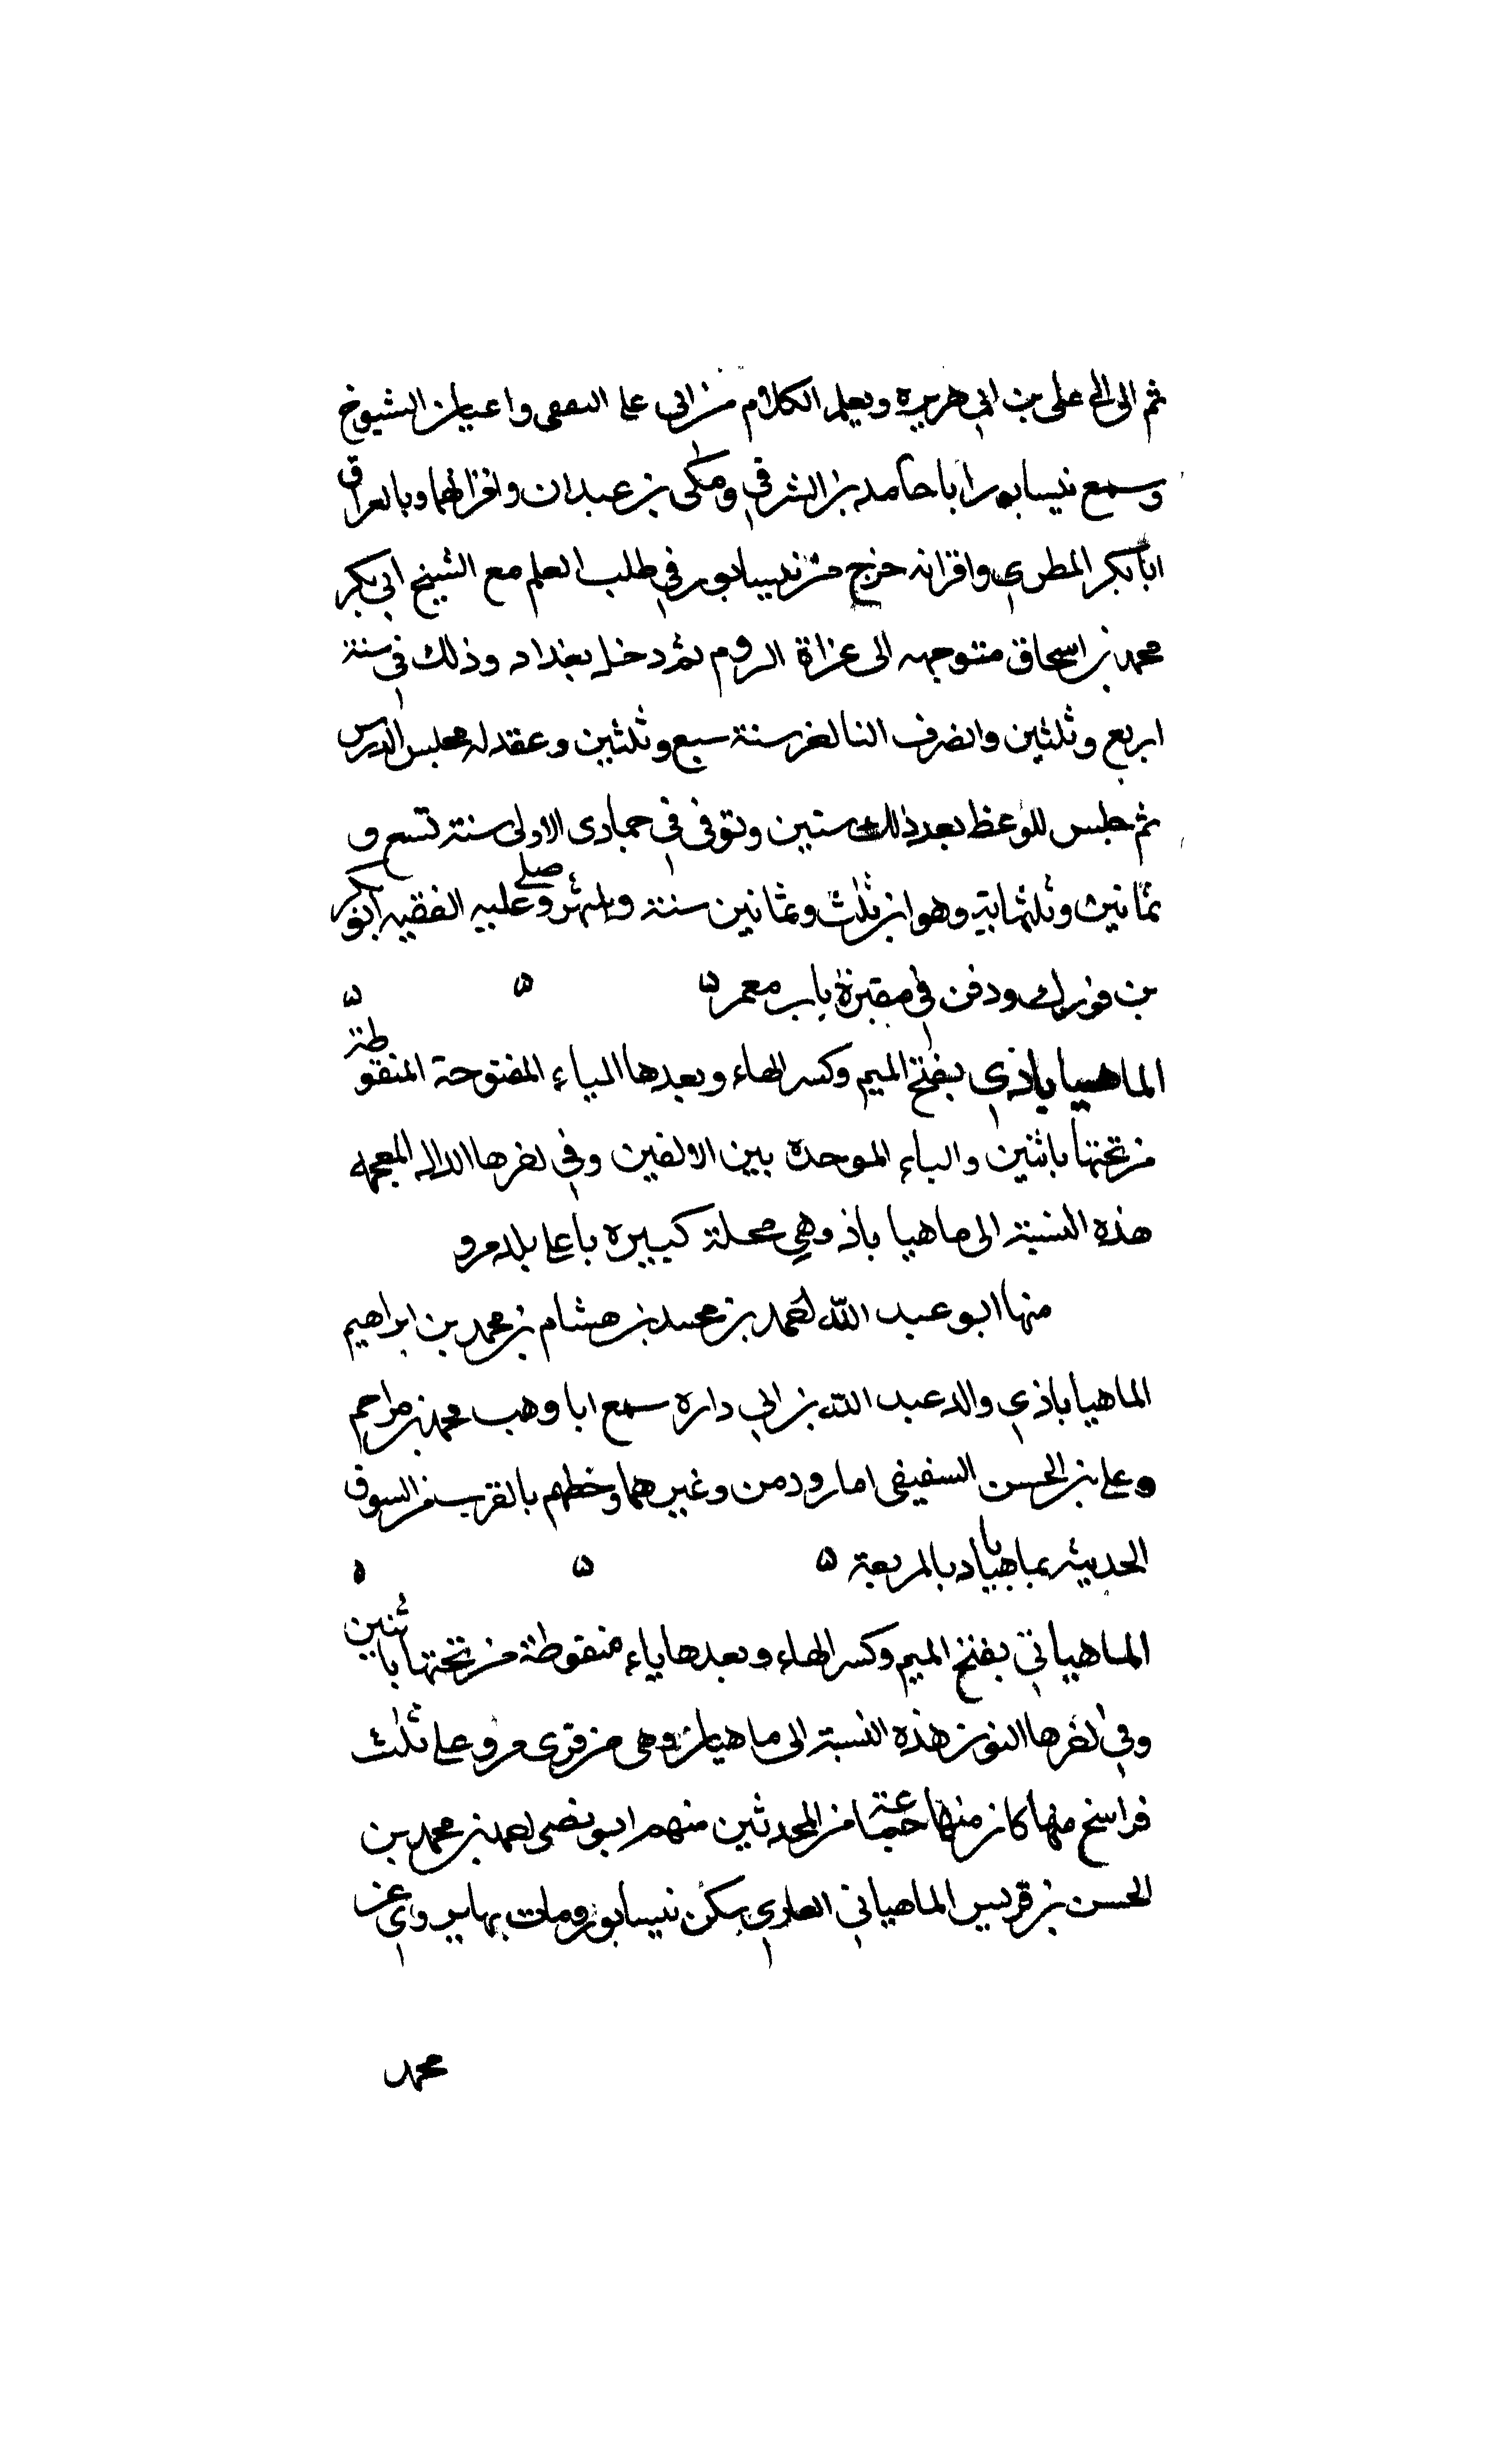 ثم الى ابي على بن ابي هريرة وتعلم الكلام من ابي على الثقفى واعيان الشيوخ
وسمع نيسابور ابا حامد بن الشرقي ومكى بن عبدان واقرانهما وبالعراق
ابا بكر المطيري واقرانه خرج من نيسابور في طلب العلم مع الشيخ ابي بكر
محمد بن اسحاق متوجه الى غزاة الروم ثم دخل بغداد وذلك في سنة
اربع وثلثين وانصرف الينا سنة سبع وثلثين وعقد له مجلس الدرس
ثم جلس للوعظ بعد ذلك سنين وتوفى في جمادى الاولى سنة تسع و
ثمانين وثلثماية وهو ابن ثلث وثمانين سنة واشهر وصلى عليه الفقيه ابو بكر
بن فورك ودفن في مقبرة باب معمر ه ه ه
الماهياباذي بفتح الميم وكسر الهاء وبعدها الياء المفتوحة المنقوطة
من تحتها باثنين والباء الموحدة بين الالفين وفي اخرها الدال المعجمه
هذه النسبة الى ماهياباذ وهي محلة كبيرة باعلى بلد مرو
منها ابو عبد الله احمد بن محمد بن هشام بن محمد بن ابراهيم
الماهياباذي والد عبد الله بن ابي داره سمع ابا وهب محمد بن مزاحم
وعلى بن الحسن وغيرهما وخطهم بالقرب من السوق
الحديثه بماهياباد بالمربعة ه ه ه
الماهياني بفتح الميم وكسر الهاء وبعدها ياء منقوطة من تحتها باثنين
وفي اخرها النون هذه النسبة الى ماهيان وهى من قرى مرو على ثلث
فراسخ منها كان منها جماعة من المحدثين منهم ابو نصر احمد بن محمد بن
الحسن بن قريش الماهياني سكن نيسابور ومات بها يروي عن
محمد